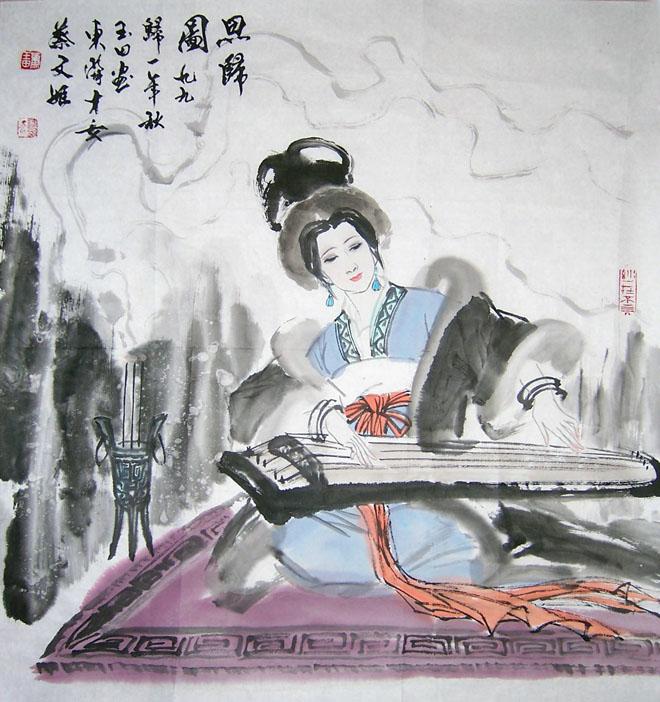 思歸
圖 九九
歸一年秋
玉田画
東漢才女
蔡文姬